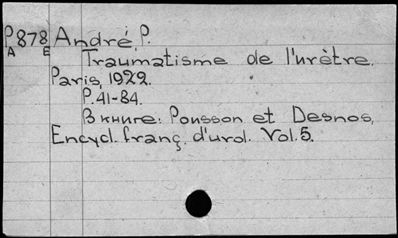 P878 André, P.
A E Traumatisme de l'urètre.
Paris, 1922.
P. 41-84.
В книге: Pousson et Desnos,
Encycl. franç. d'urol. Vol. 5.